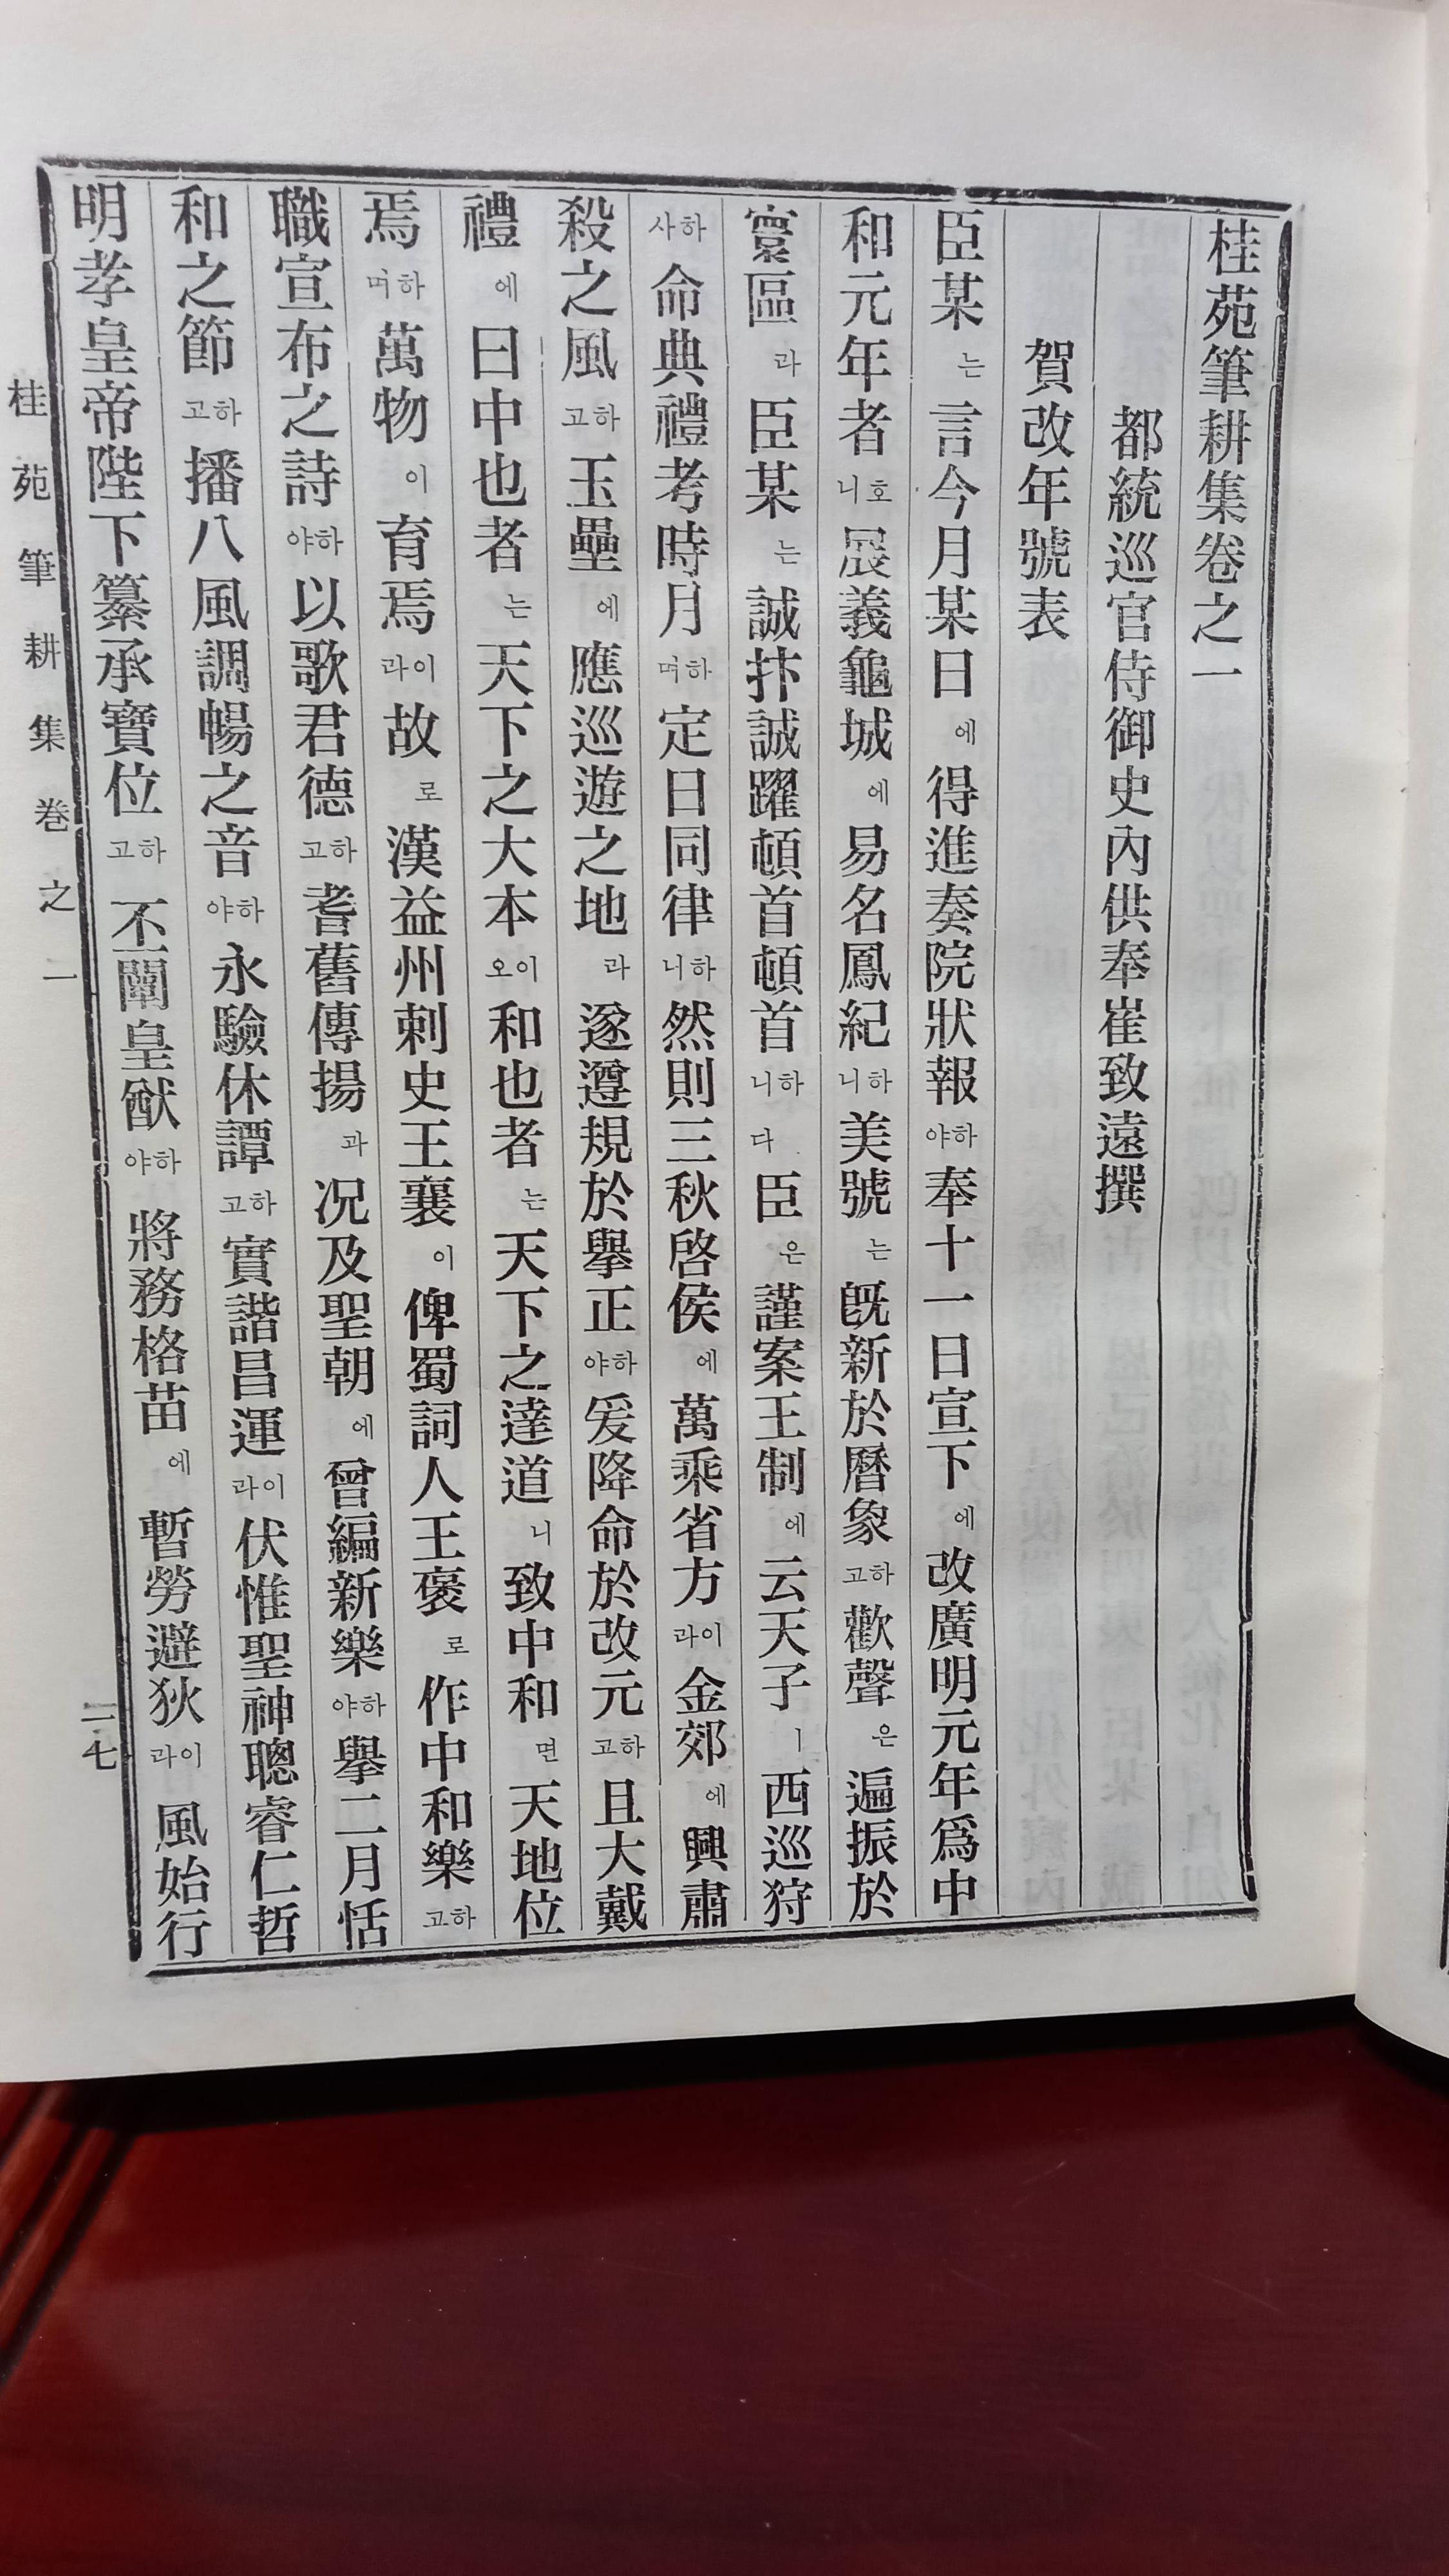 桂苑筆耕集卷之一
都統巡官侍御史內供奉崔致遠撰
賀改年號表
臣某는言今月某日에得進奏院狀報하야奉十一日宣下에改廣明元年爲中
和元年者호니展義龜城에易名鳳紀하니美號는旣新於曆象하고歡聲은遍振於
寰區라臣某는誠抃誠躍頓首頓首하니다臣은謹案王制에云天子ㅣ西巡狩
하사命典禮考時月하며定日同律하니然則三秋啓侯에萬乘省方이라金郊에興肅
殺之風하고玉壘에應巡遊之地라遂遵規於擧正하야爰降命於改元하고且大戴
禮에曰中也者는天下之大本이오和也者는天下之達道니致中和면天地位
焉하며萬物이育焉이라故로漢益州刺史王襄이俾蜀詞人王褒로作中和樂하고
職宣布之詩하야以歌君德하고耆舊傳揚과况及聖朝에曾編新樂하야擧二月恬
和之節하고播八風調暢之音하야永驗休譚하고實諧昌運이라伏惟聖神聰睿仁哲
明孝皇帝陛下纂承寶位하고丕闡皇猷하야將務格苗에暫勞避狄이라風始行
桂苑筆耕集卷之一
一七